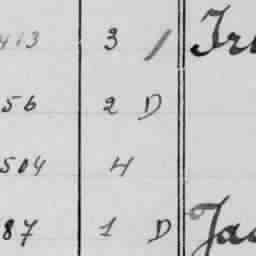 413 3 / Ir
56 2 D
504 4
87 1 D Ja